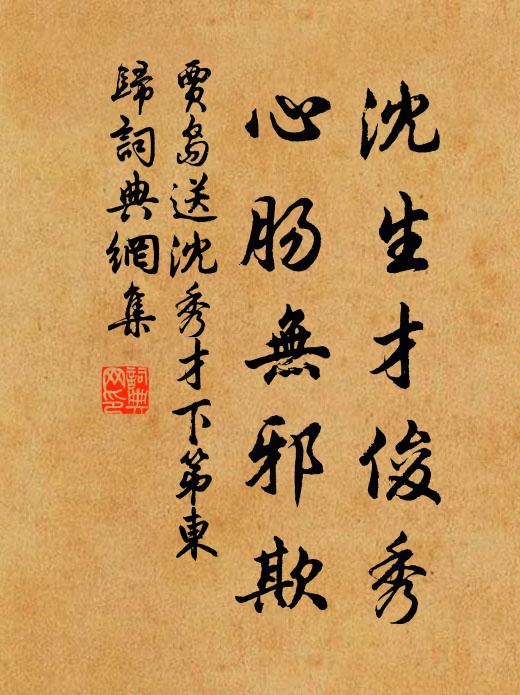 沈生才俊秀
心肠無邪欺
賈島送沈秀才下第東
歸詞典網集
詞典
网印